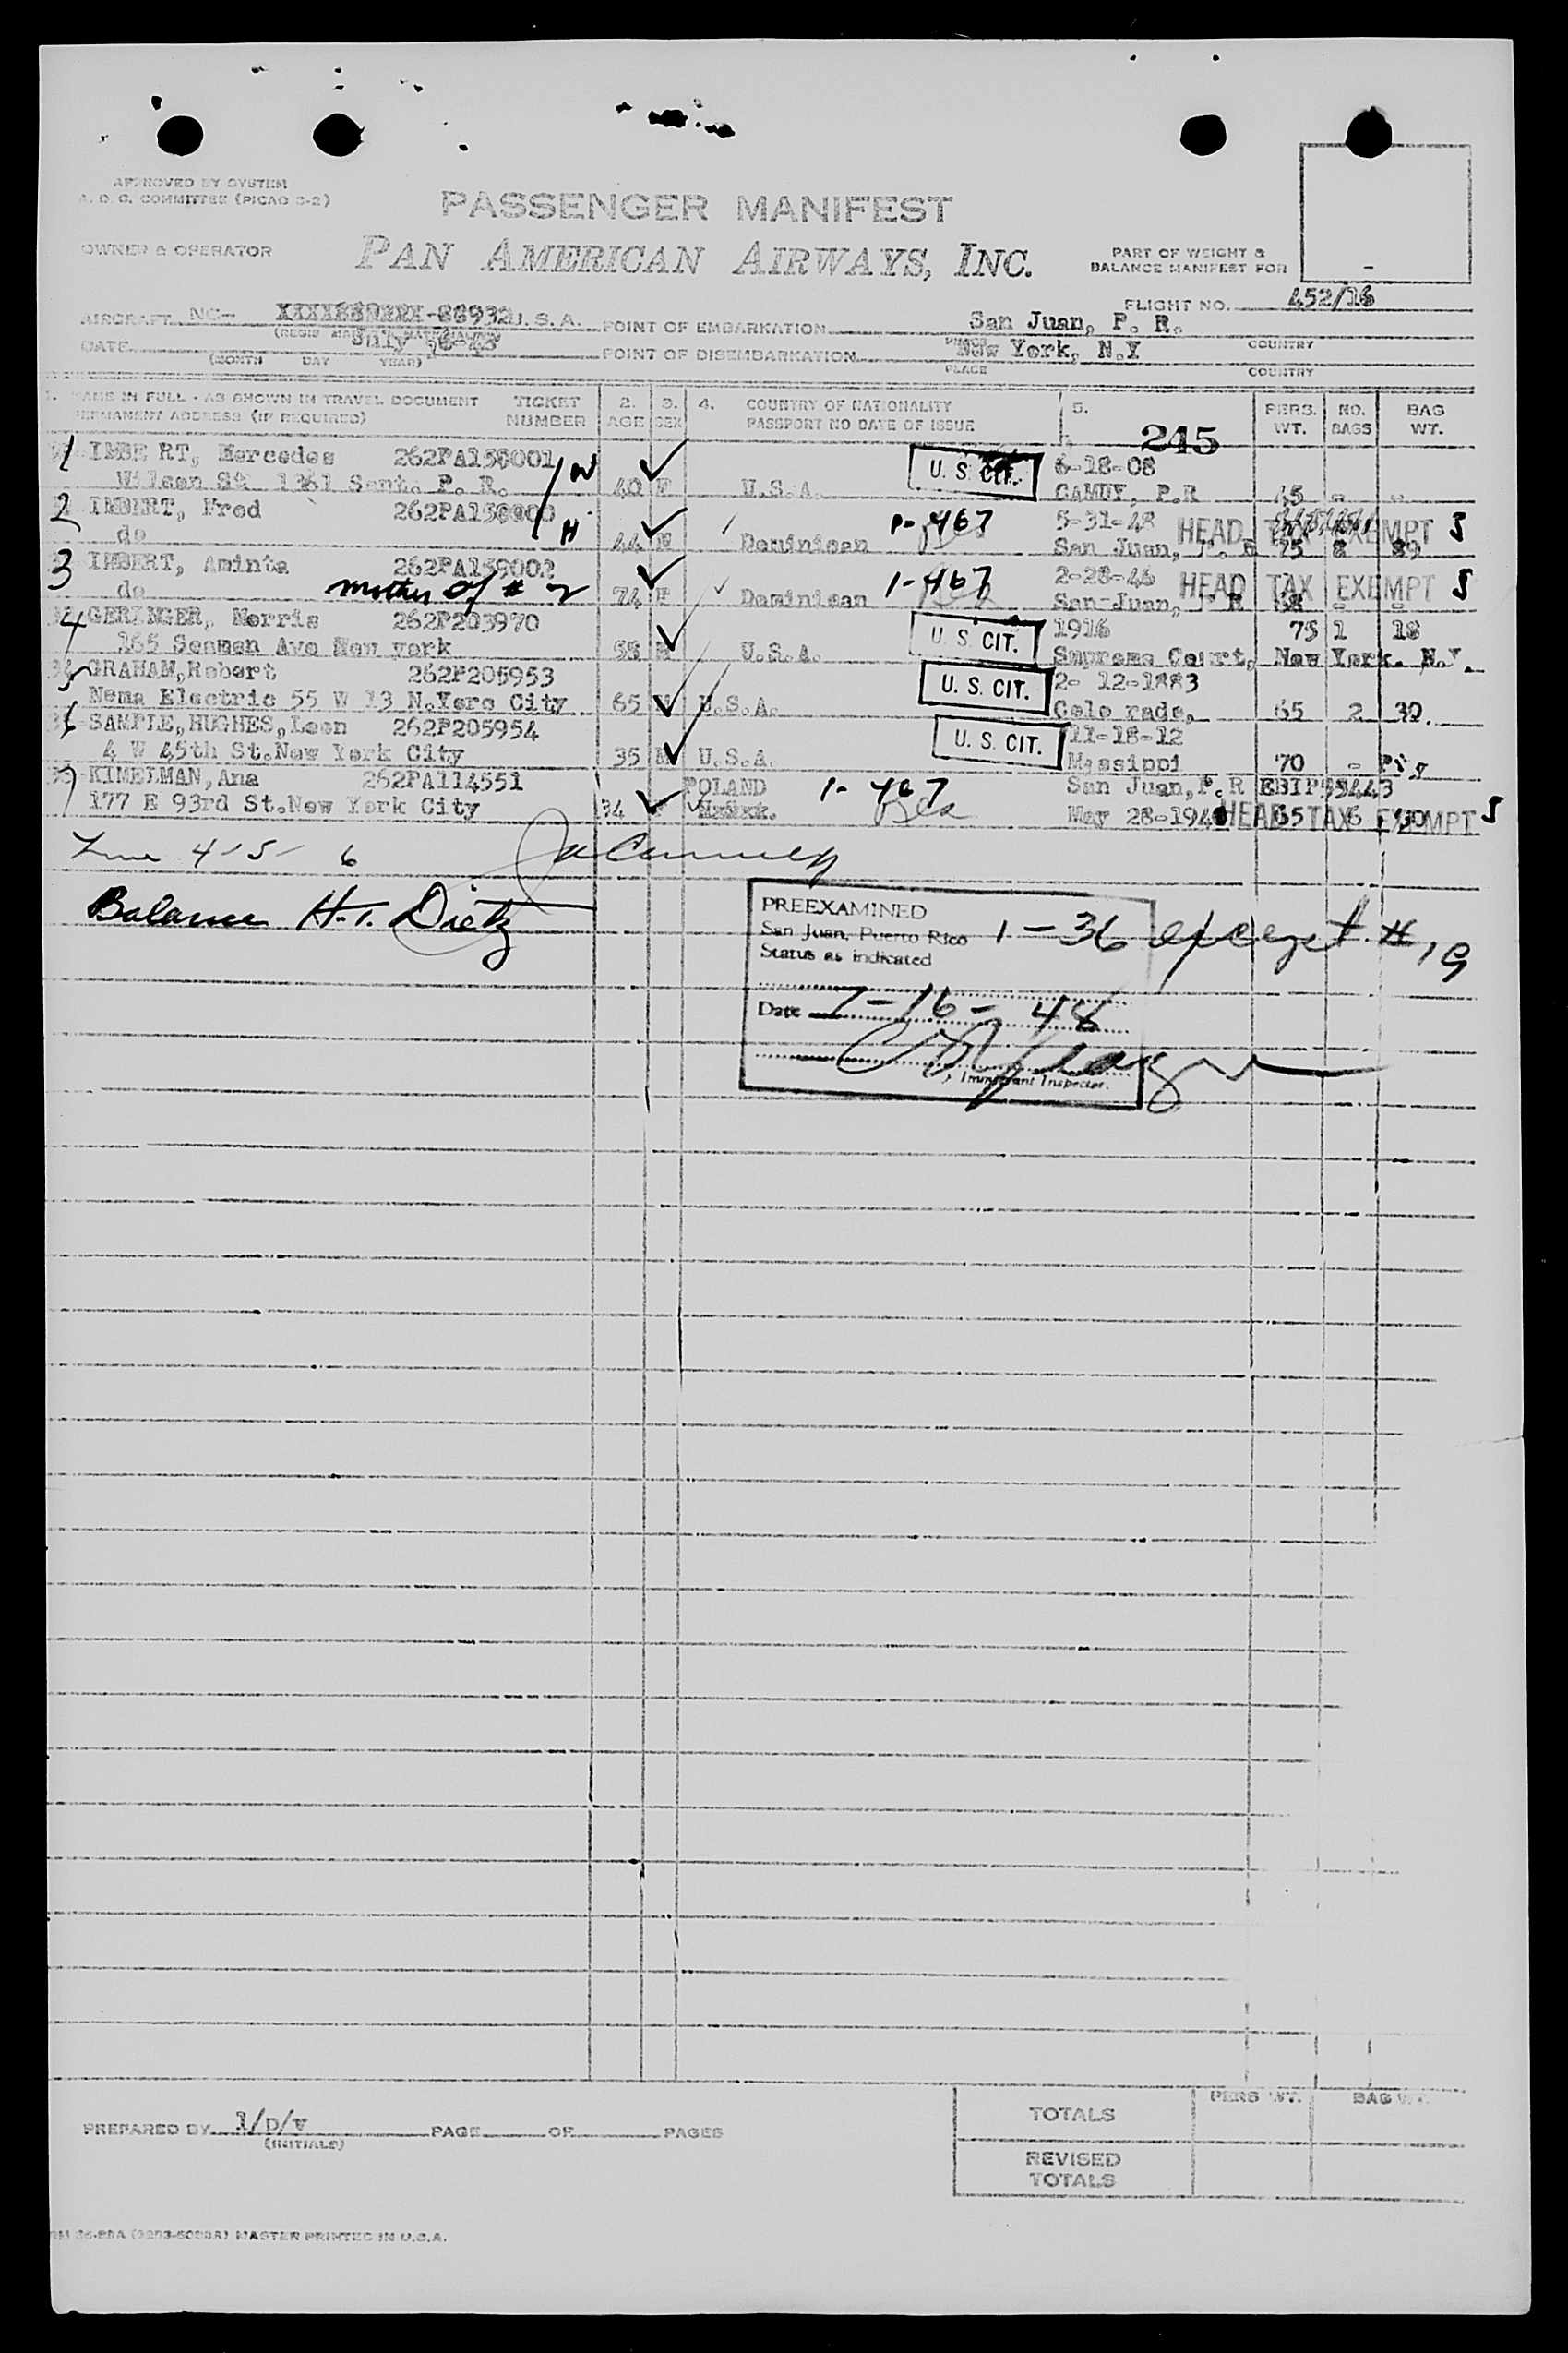 APPROVED BY SYSTEM
A. O. C. COMMITTEE (PICAO 3-2)
PASSENGER MANIFEST
OWNER & OPERATOR
PAN AMERICAN AIRWAYS, INC.
PART OF WEIGHT &
BALANCE MANIFEST FOR
FLIGHT NO. 452/16
AIRCRAFT NC- 88932 U.S.A. POINT OF EMBARKATION San Juan, P. R.
DATE July 16-48 POINT OF DISEMBARKATION New York, N.Y
(MONTH DAY YEAR) PLACE COUNTRY
1. NAME IN FULL - AS SHOWN IN TRAVEL DOCUMENT TICKET 2. 3. 4. COUNTRY OF NATIONALITY 5. PERS. NO. BAG
PERMANENT ADDRESS (IF REQUIRED) NUMBER AGE SEX PASSPORT NO DATE OF ISSUE WT. BAGS WT.
245
1 IMBE RT, Mercedes 262PA158001 W U. S. CIT. 6-18-08
Wilson St 1361 Sant. P. R. 40 F U.S.A. CAMUY, P.R 45 - -
2 IMBERT, Fred 262PA158900 H P-467 5-31-48 HEAD TAX EXEMPT S
do 44 M Dominican San Juan, P. R 75 8 89
3 IMBERT, Aminta 262PA159002 1-467 2-28-46 HEAD TAX EXEMPT S
do mother of # 2 74 F Dominican San Juan, P R 58 - -
4 GERINGER, Morris 262P203970 U. S. CIT. 1916 75 1 18
165 Seaman Ave New york 55 M U.S.A. Supreme Court, New York. N.Y.
5 GRAHAM,Robert 262P205953 U. S. CIT. 2- 12-1883
Nema Electric 55 W 13 N.Yoro City 65 M U.S.A. Colo rado, 65 2 30.
6 SAMPLE,HUGHES,Leon 262P205954 U. S. CIT. 11-18-12
4 W 45th St.New York City 35 M U.S.A. Missippi 70 -
7 KIMELMAN,Ana 262PA114551 POLAND 1-467 San Juan,P.R
177 E 93rd St.New York City 34 F May 28-194 65 6 HEAD TAX EXEMPT S
Line 4-5- 6
Balance H.T. Dietz
PREEXAMINED
San Juan, Puerto Rico 1-36 except #19
Status as indicated
Date 7-16-48
Immigrant Inspector.
TOTALS PERS WT. BAG WT.
PREPARED BY 1/p/v PAGE OF PAGES
(INITIALS)
REVISED
TOTALS
MASTER PRINTED IN U.S.A.